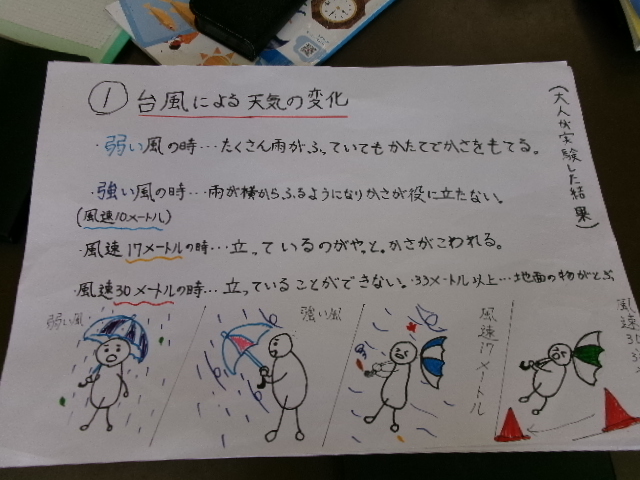 ① 台風による天気の変化
(大人が実験した結果)
・弱い風の時…たくさん雨がふっていてもかたてでかさをもてる。
・強い風の時…雨が横からふるようになりかさが役に立たない。
(風速10メートル)
・風速17メートルの時…立っているのがやっと。かさがこわれる。
・風速30メートルの時…立っていることができない。・33メートル以上…地面の物がとぶ
弱い風
強い風
風速17メートル
風速30